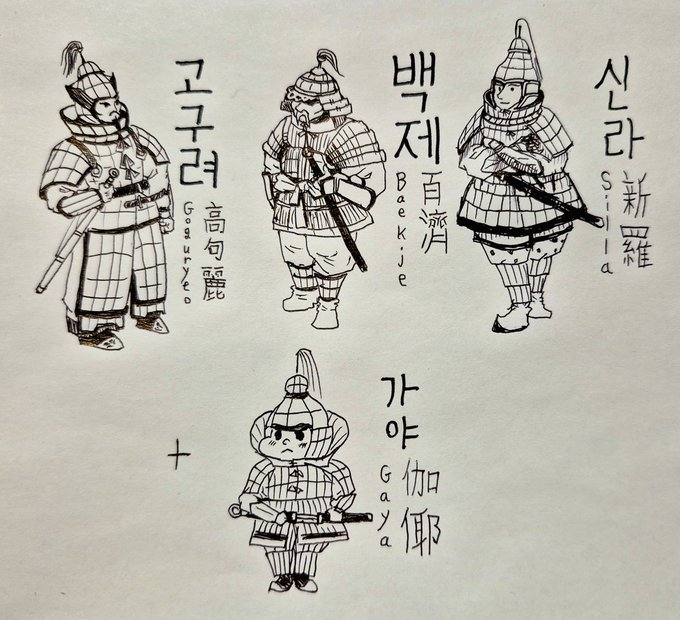 고구려
Goguryeo
高句麗
백제
Baekje
百濟
신라
Silla
新羅
+
가야
Gaya
伽倻